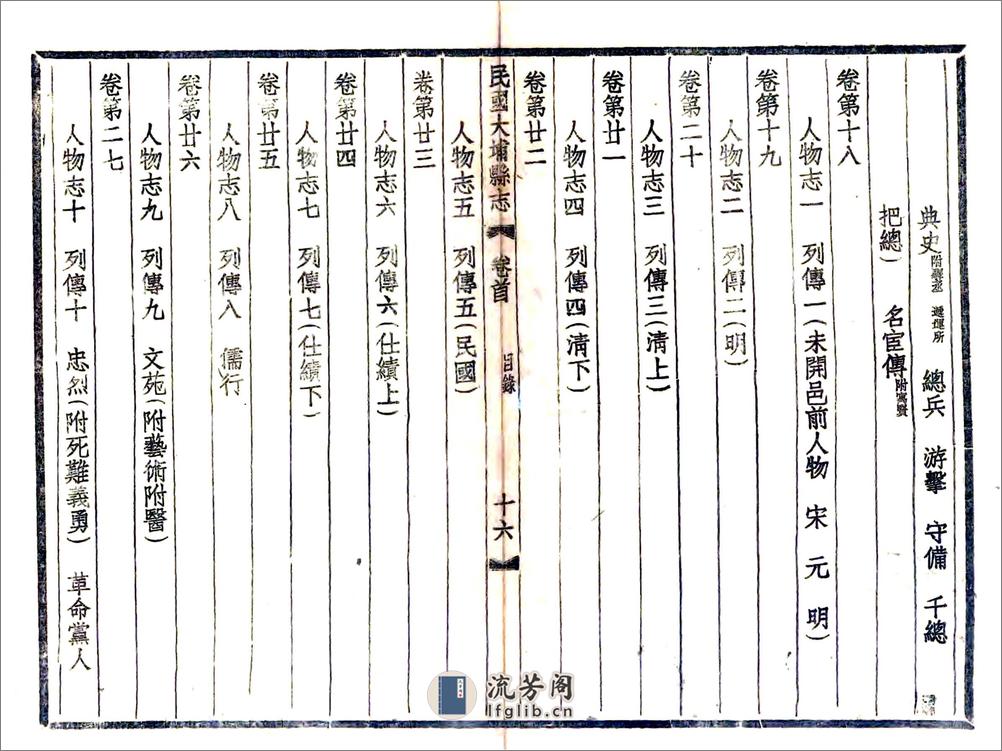 典史附驛丞 遞運所 總兵 游擊 守備 千總
把總） 名宦傳附寓賢
卷第十八
人物志一 列傳一（未開邑前人物 宋 元 明）
卷第十九
人物志二 列傳二（明）
卷第二十
人物志三 列傳三（淸上）
卷第廿一
人物志四 列傳四（淸下）
卷第廿二
民國大埔縣志 卷首 目錄 十六
人物志五 列傳五（民國）
卷第廿三
人物志六 列傳六（仕績上）
卷第廿四
人物志七 列傳七（仕績下）
卷第廿五
人物志八 列傳八 儒行
卷第廿六
人物志九 列傳九 文苑（附藝術附醫）
卷第二七
人物志十 列傳十 忠烈（附死難義勇） 革命黨人
流芳阁
lfglib.cn